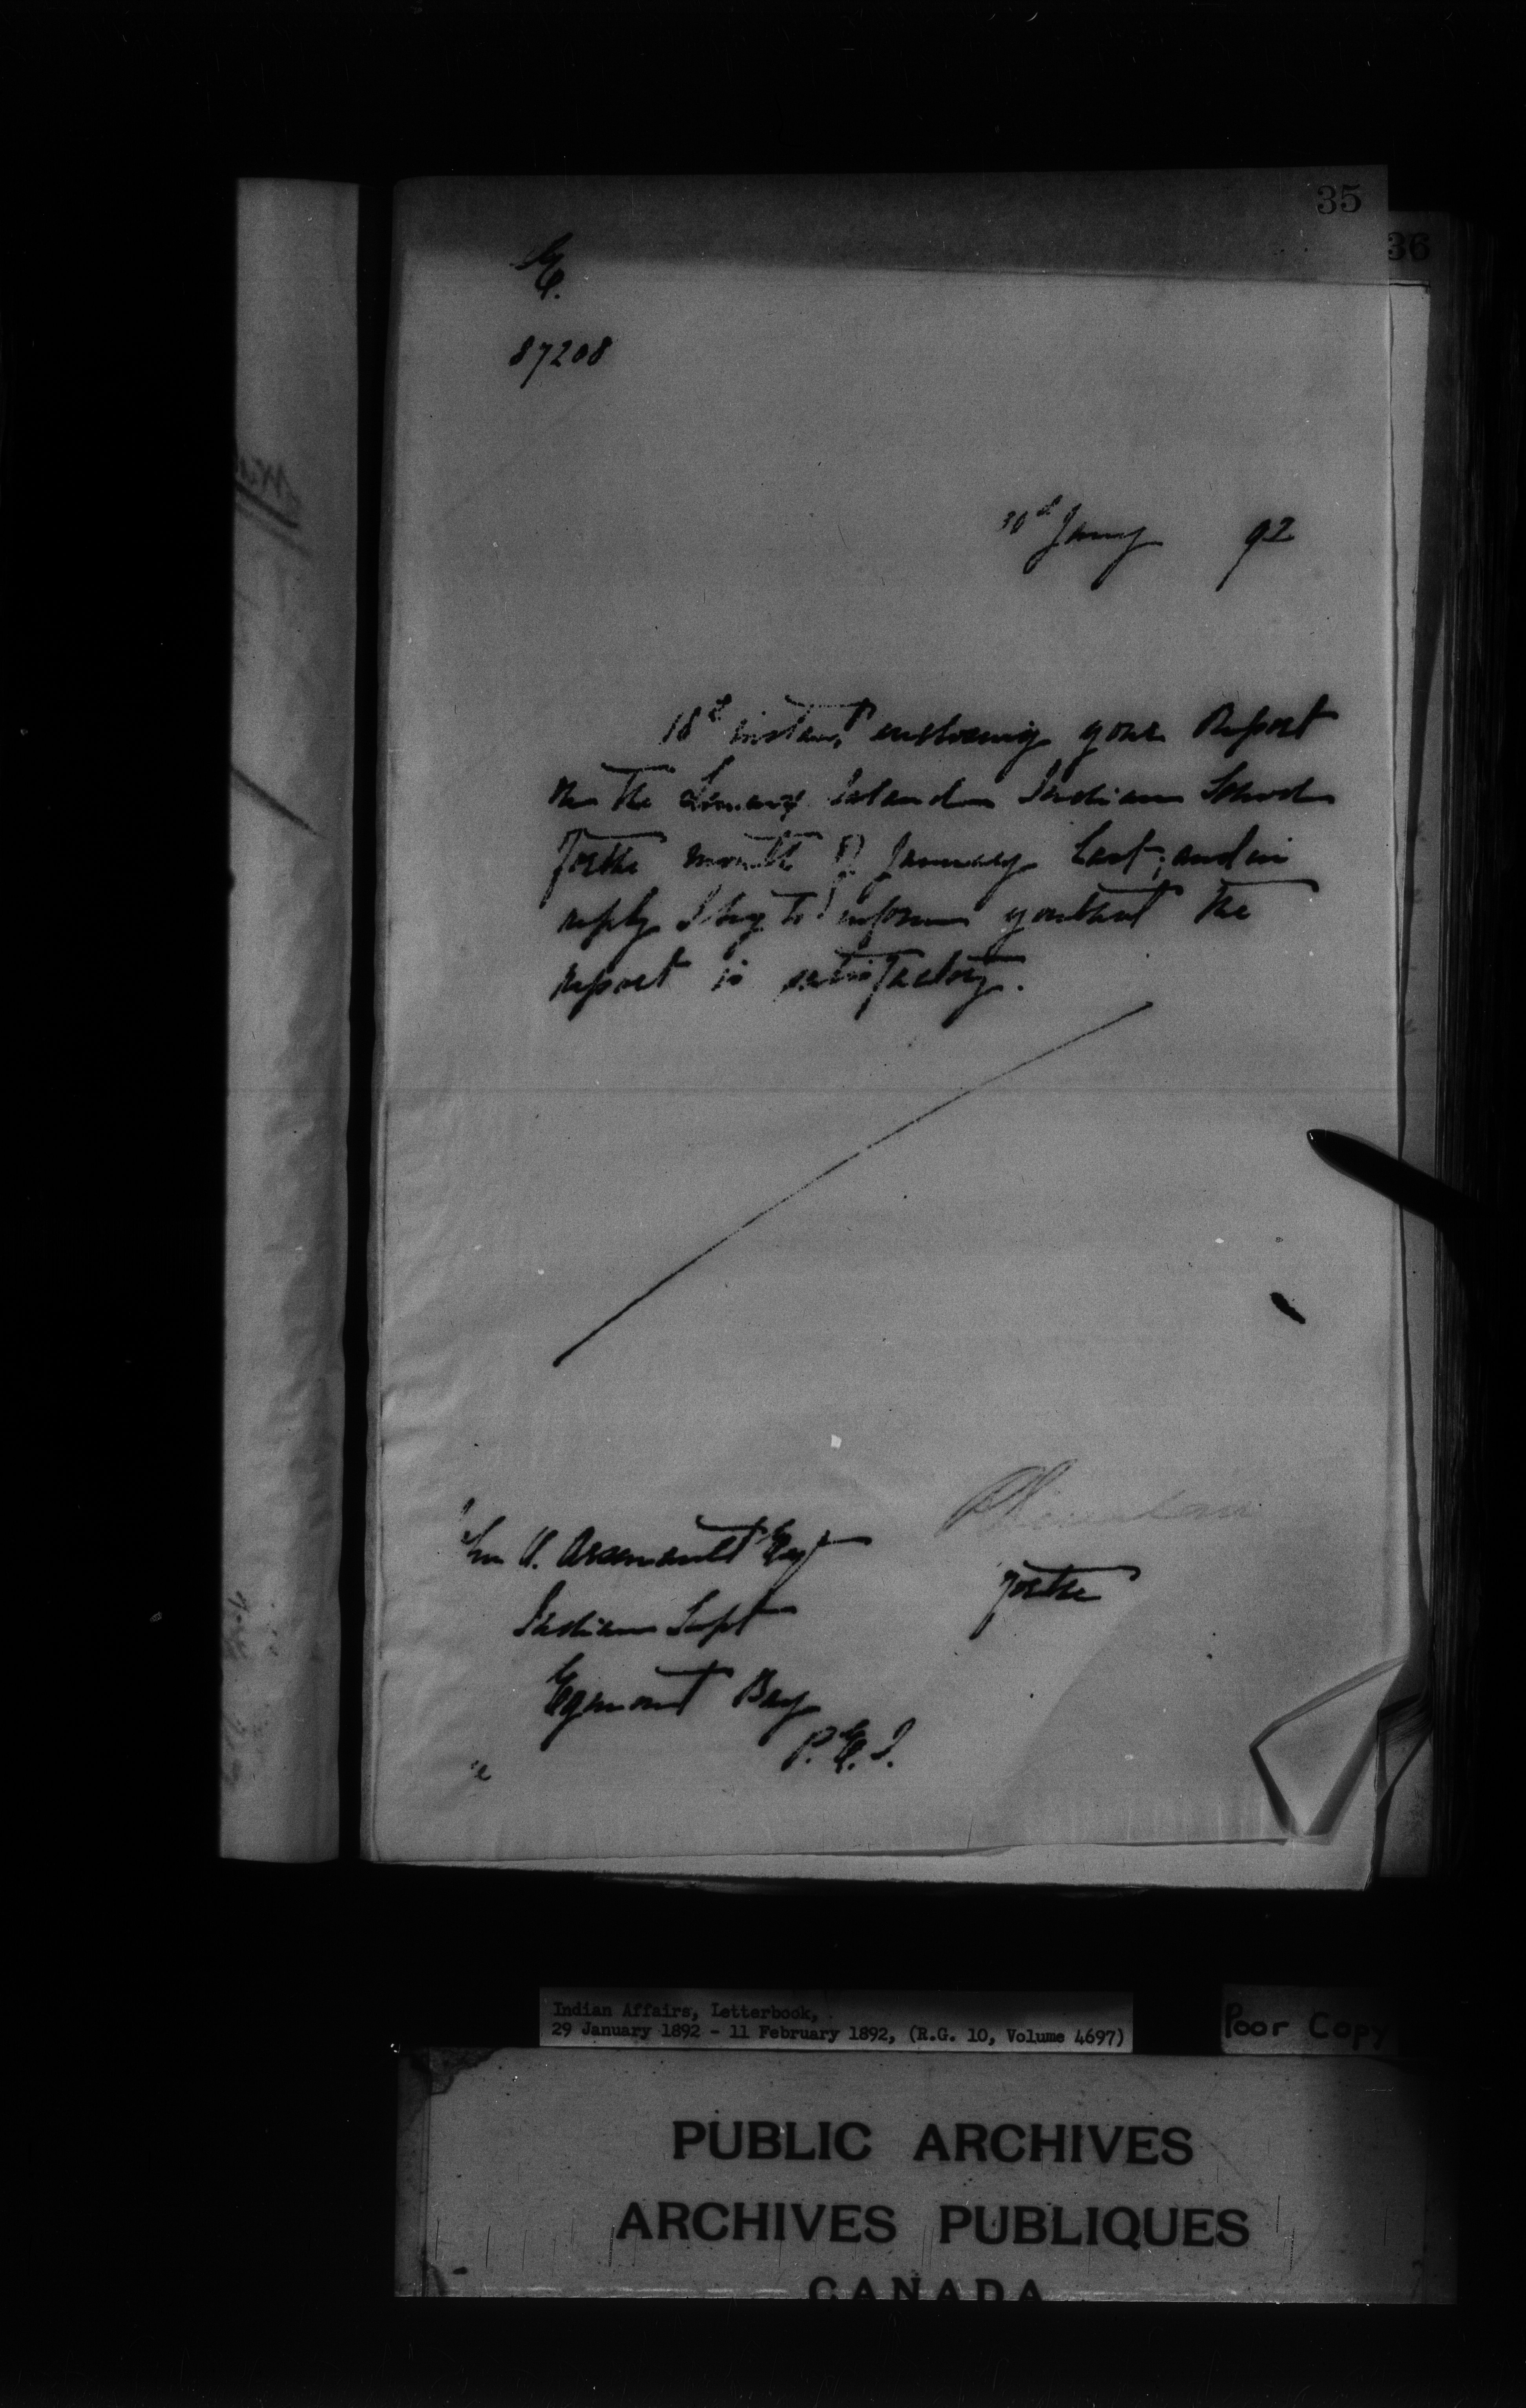 35
36
E.
87208
30th Jany 92
18th instant enclosing your Report
on the Lennox Island Indian School
for the month of January last; and in
reply I beg to inform you that the
report is satisfactory.
Jno O. Arsenault Esq
Indian Supt
Egmont Bay
P.E.I.
for the
Indian Affairs, Letterbook,
29 January 1892 - 11 February 1892, (R.G. 10, Volume 4697)
Poor Copy
PUBLIC ARCHIVES
ARCHIVES PUBLIQUES
CANADA